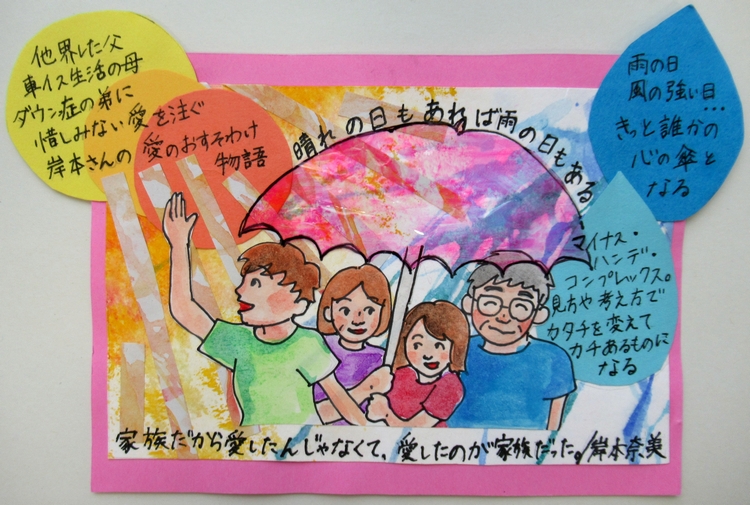 他界した父
車イス生活の母
ダウン症の弟に
惜しみない愛を注ぐ
岸本さんの愛のおすそわけ
物語
晴れの日もあれば雨の日もある
雨の日
風の強い日…
きっと誰かの
心の傘と
なる
マイナス・
ハンデ・
コンプレックス。
見方や考え方で
カタチを変えて
カチあるものに
なる
家族だから愛したんじゃなくて、愛したのが家族だった。/岸本奈美